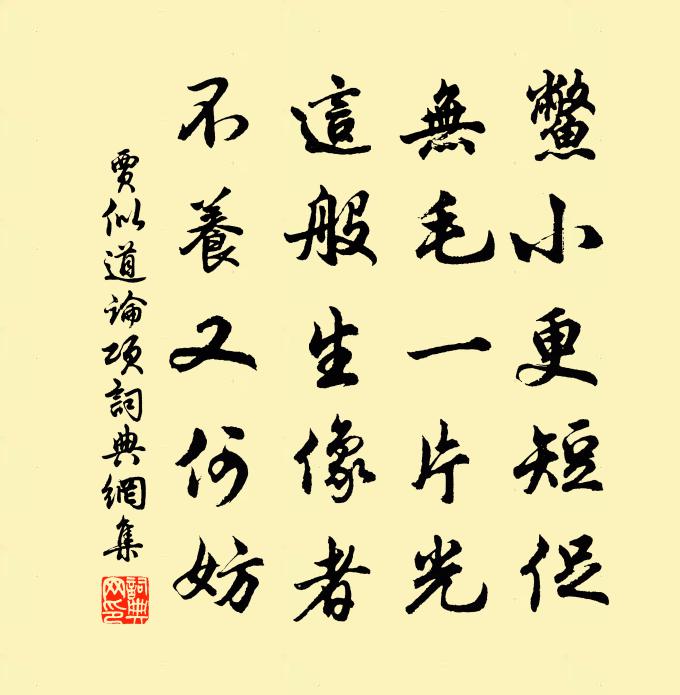 鱉小更短促
無毛一片光
這般生像者
不養又何妨
賈似道論項詞典網集
詞典網印